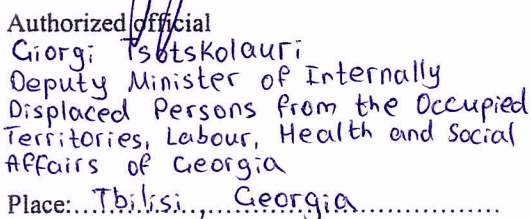 Authorized official
Giorgi Tsotskolauri
Deputy Minister of Internally
Displaced Persons from the Occupied
Territories, Labour, Health and Social
Affairs of Georgia
Place:....Tbilisi..,....Georgia......................